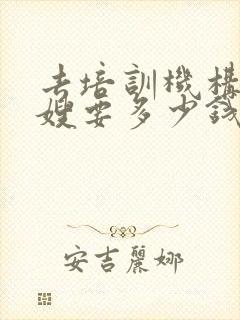 去培訓機構
嫂要多少錢
安吉麗娜